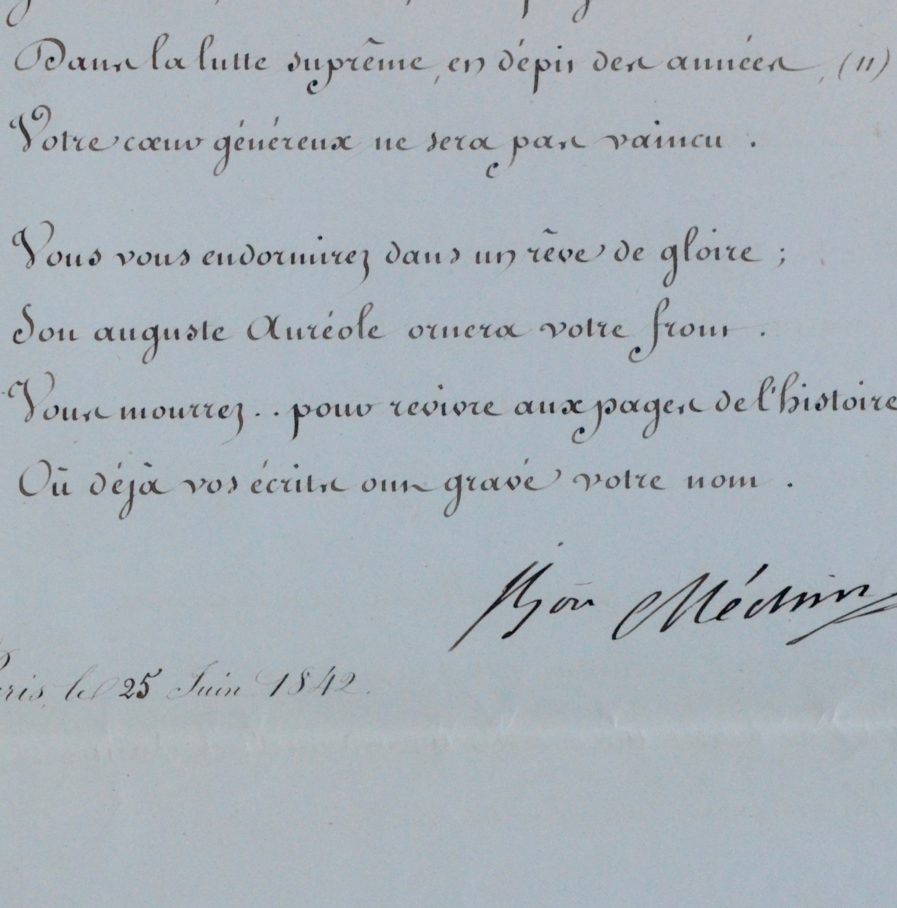 Dans la lutte suprême, en dépit des années, (11)
Votre cœur généreux ne sera pas vaincu.
Vous vous endormirez dans un rêve de gloire ;
Son auguste Auréole ornera votre front.
Vous mourrez.. pour revivre aux pages de l'histoire
Où déjà vos écrits ont gravé votre nom.
Bon Méchin
ris, le 25 Juin 1842.